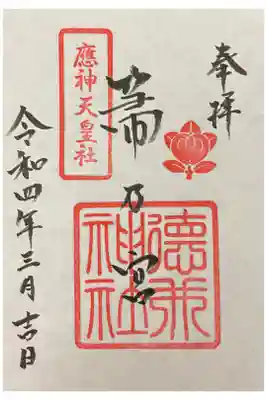 奉拝
箒乃宮
應神天皇社
神社
令和四年三月吉日